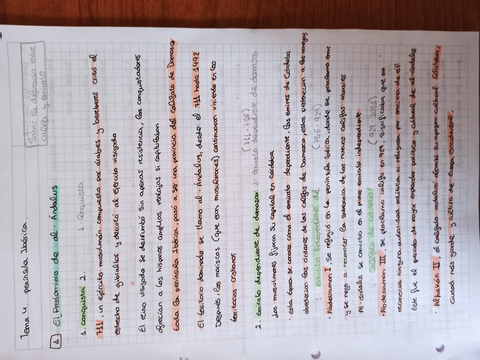 Tema 4. península Ibérica.
Saber la diferencia entre califa y emirato
1 El Predominio de al-Andalus
1. conquista 2. 1. Conquista
711, un ejército musulmán compuesto por árabes y bereberes cruzó el
estrecho de gibraltar y derrotó al ejército visigodo
El reino visigodo se derrumbó sin apenas resistencia, los conquistadores
ofrecían a los hispanos amplias ventajas si capitulaban
toda la península ibérica pasó a ser una provincia del califato de Damasco
El territorio dominado se llamó al-Ándalus, desde el 711 hasta 1492
Después, los moriscos (que eran musulmanes) continuaron viviendo en los
territorios cristianos
(711, 756)
2. Emirato dependiente de damasco: Emirato dependiente de damasco
Los musulmanes fijaron su capital en córdoba
esta época se conoce como el emirato dependiente, los emires de Córdoba
obedecían las órdenes de los califas de Damasco,
3. Emirato independiente de (756-929)
Abderraman I, se refugió en la península ibérica, donde se proclamó emir
y se negó a reconocer la autoridad de los nuevos califas
Al-ándalus se convirtió en el primer emirato independiente.
4. Califato de córdoba (929, 1031)
Abderraman III, se proclamó califa en 929, significaba que no
reconocía ninguna autoridad política ni religiosa por encima de él
Este fue el periodo de mayor esplendor político y cultural de al-ándalus